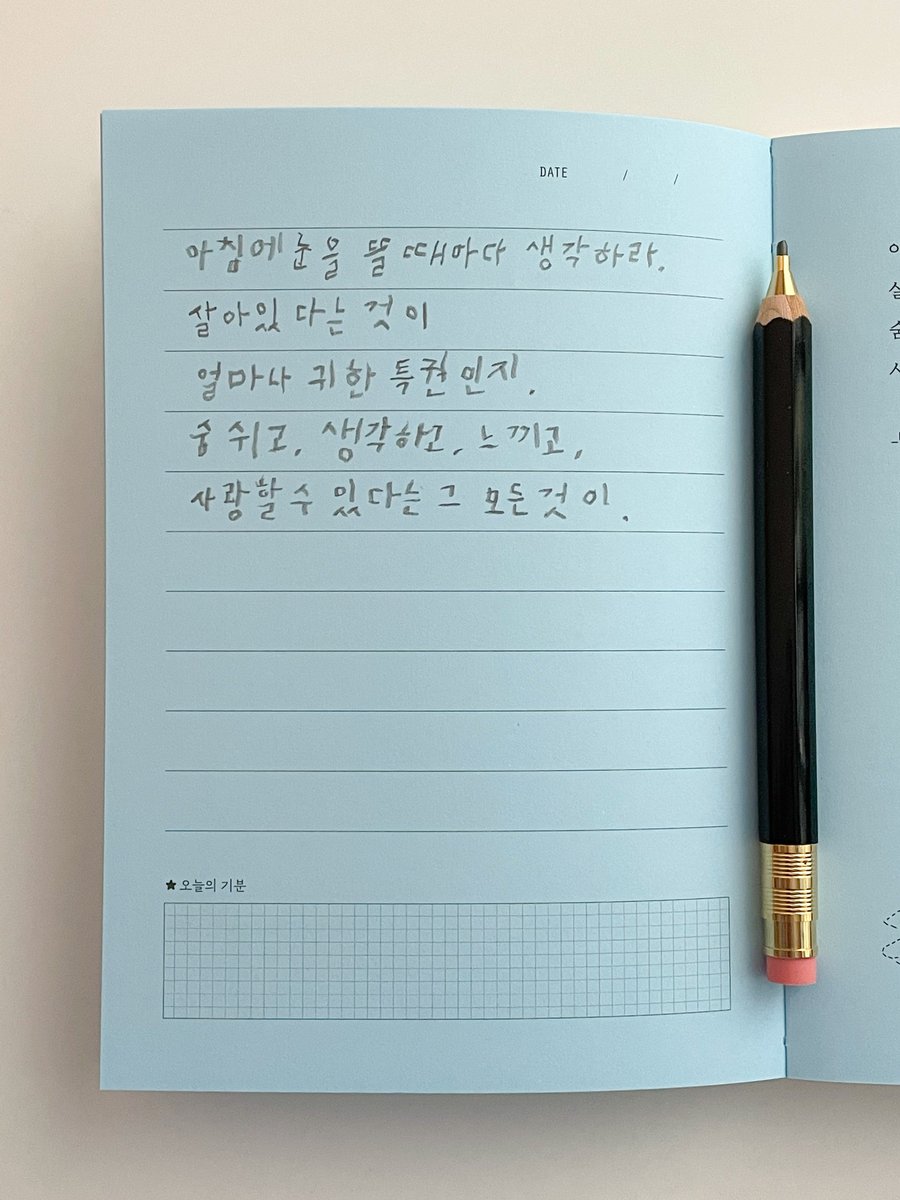 DATE / /
아침에 눈을 뜰 때마다 생각하라.
살아있다는 것이
얼마나 귀한 특권인지.
숨 쉬고, 생각하고, 느끼고,
사랑할 수 있다는 그 모든 것이.
★ 오늘의 기분